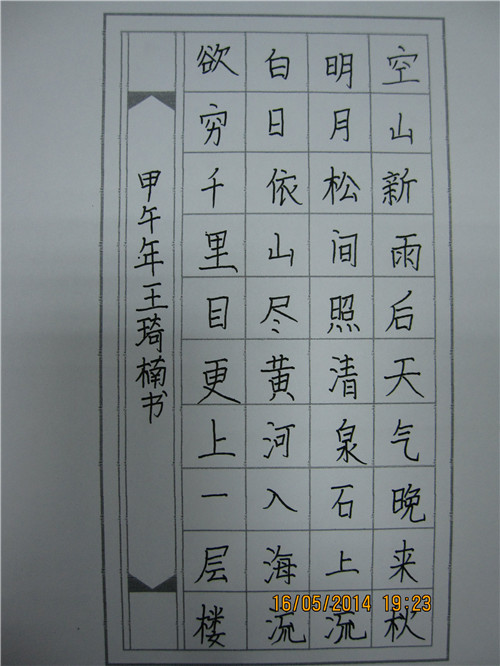 空山新雨后天气晚来秋
明月松间照清泉石上流
白日依山尽黄河入海流
欲穷千里目更上一层楼
甲午年王琦楠书
16/05/2014 19:23